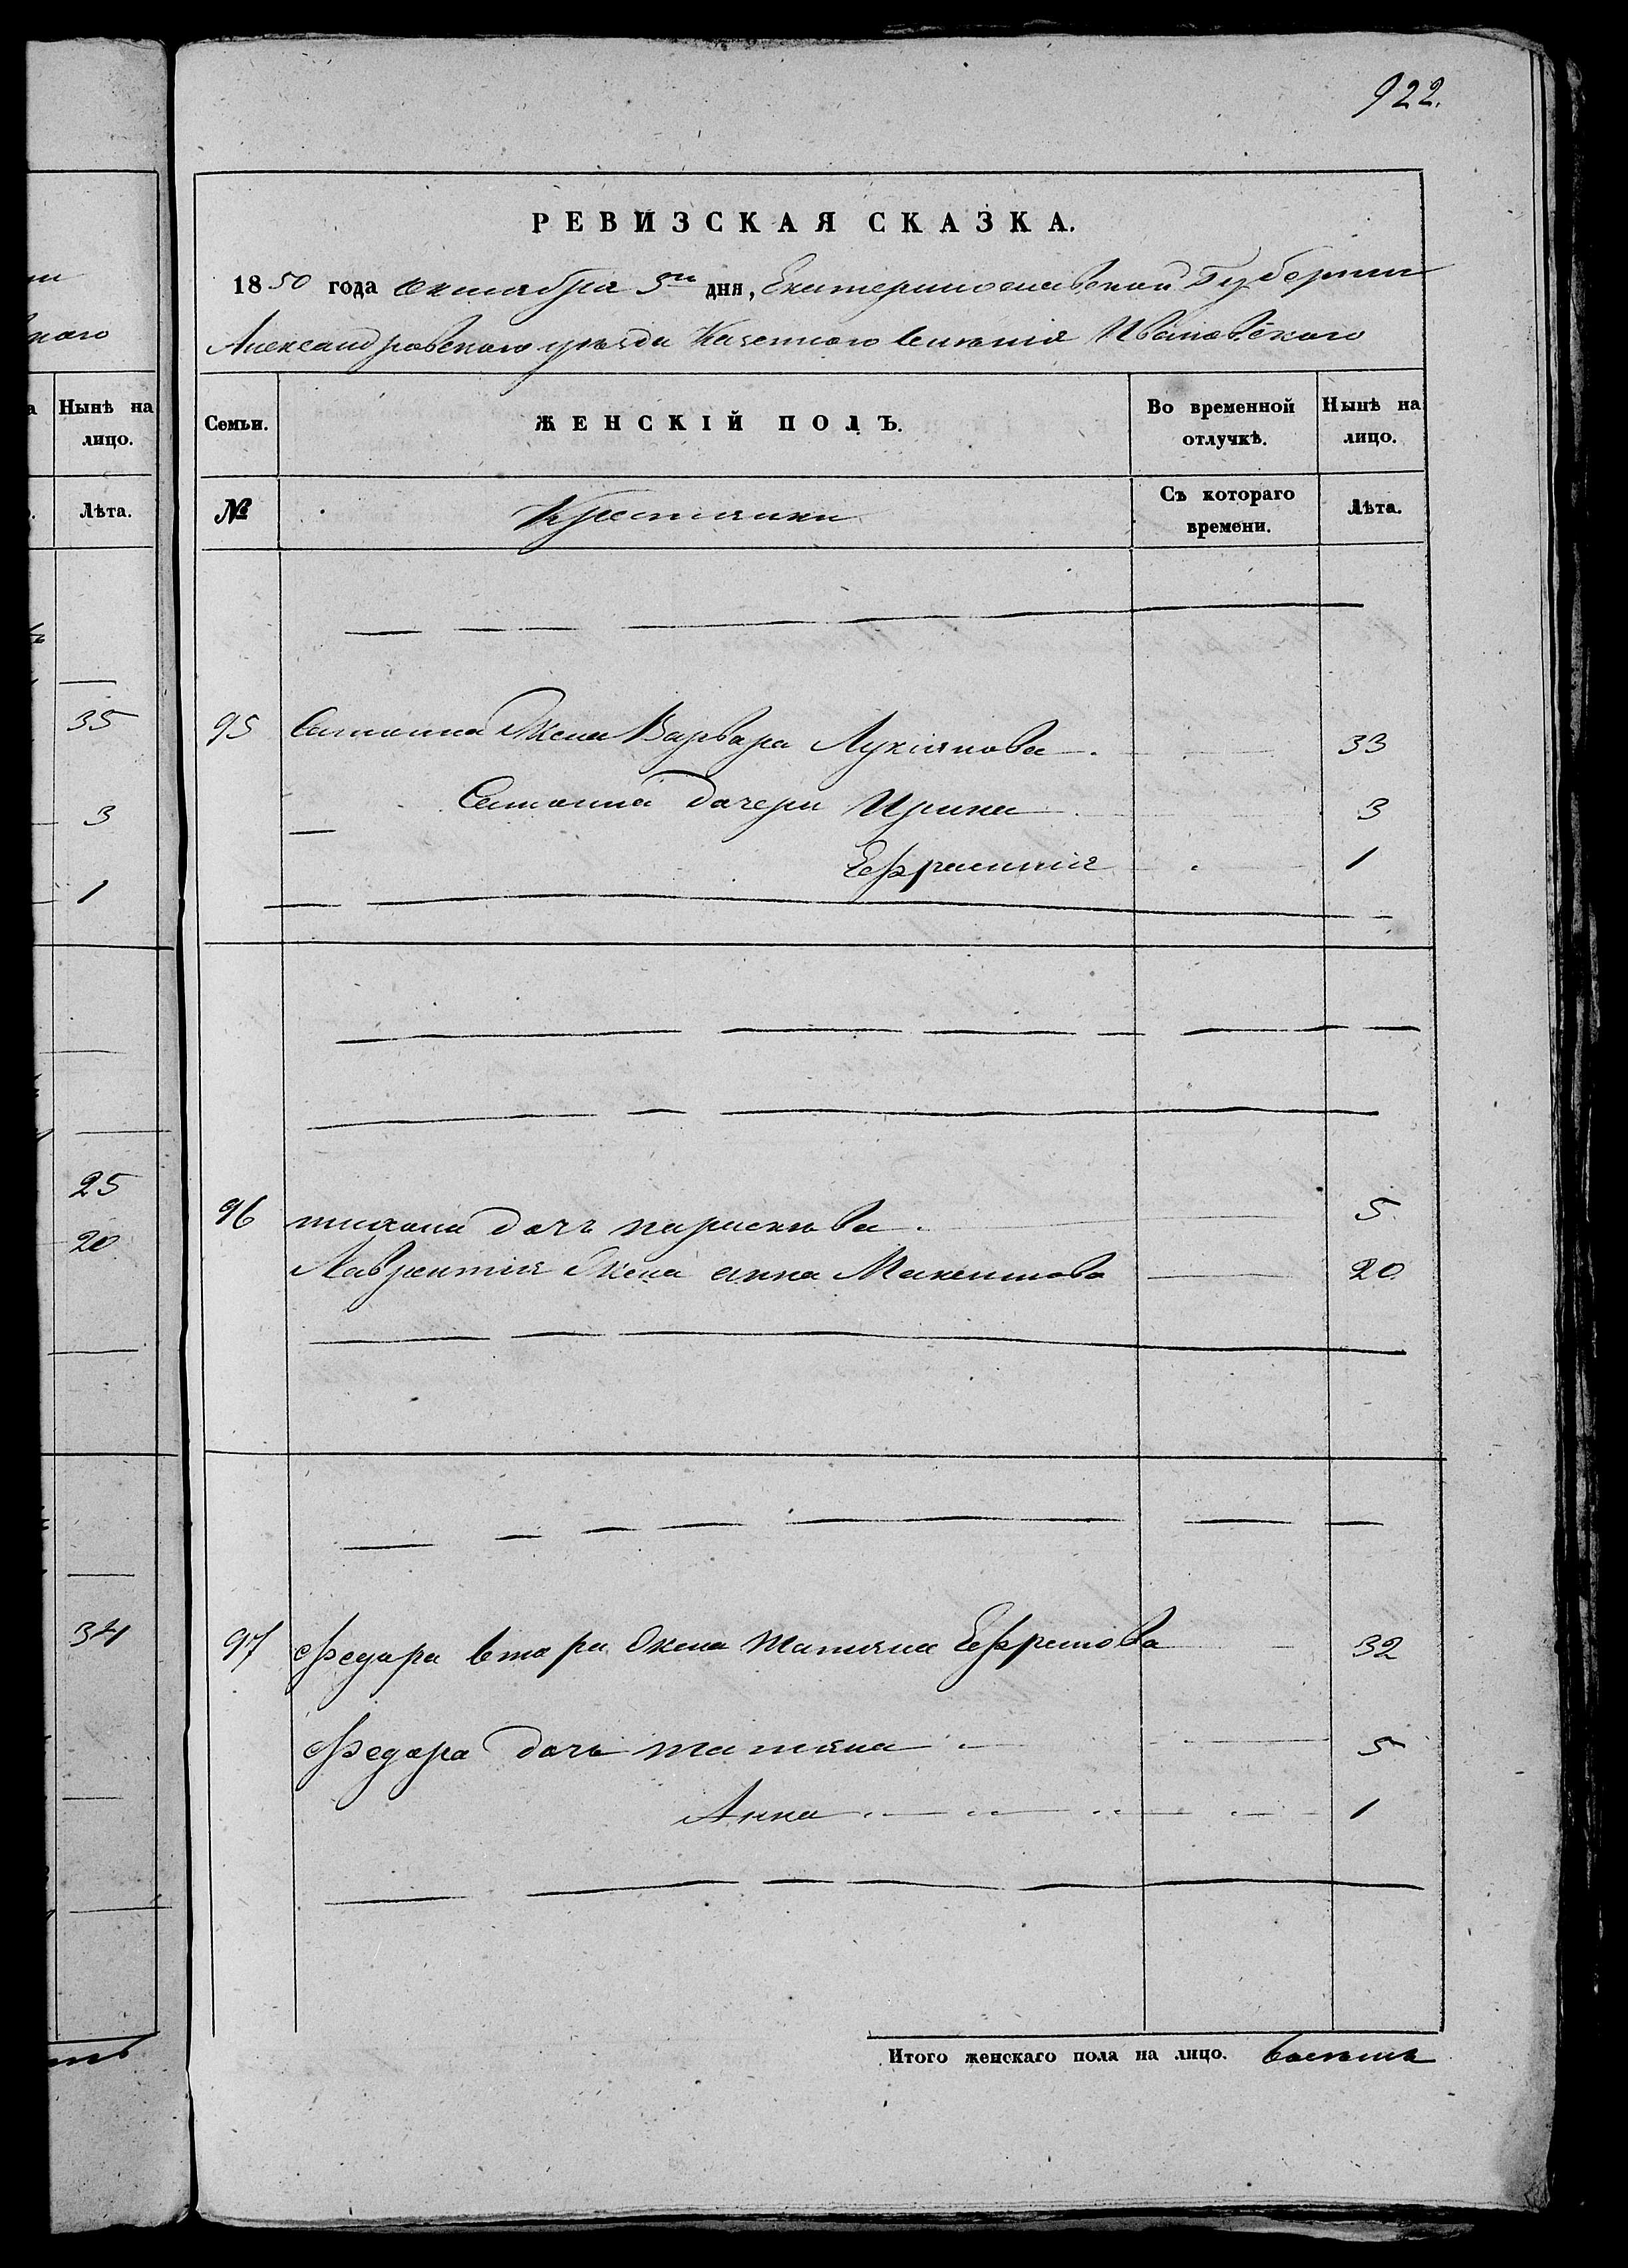 922.
РЕВИЗСКАЯ СКАЗКА.
1850 года октября 5го дня, Екатеринославской Губернии
Александровского уѣзда Казенного Селенія Ивановского
Нынѣ на лицо.
Лѣта.
35
3
1
25
20
34
Семьи. ЖЕНСКІЙ ПОЛЪ. Во временной отлучкѣ. Нынѣ на лицо.
№ Крестьянки Съ котораго времени. Лѣта.
95 Жена Варвара Лукіянова 33
дочери Ирина 3
Ефросинія 1
96 тихона дочь параскѣва 5
Лаврентія Жена анна Максимова 20
97 Федора втора жена татіяна Ефремова 32
Федора дочь татіяна 5
Анна 1
Итого женскаго пола на лицо. восѣмь